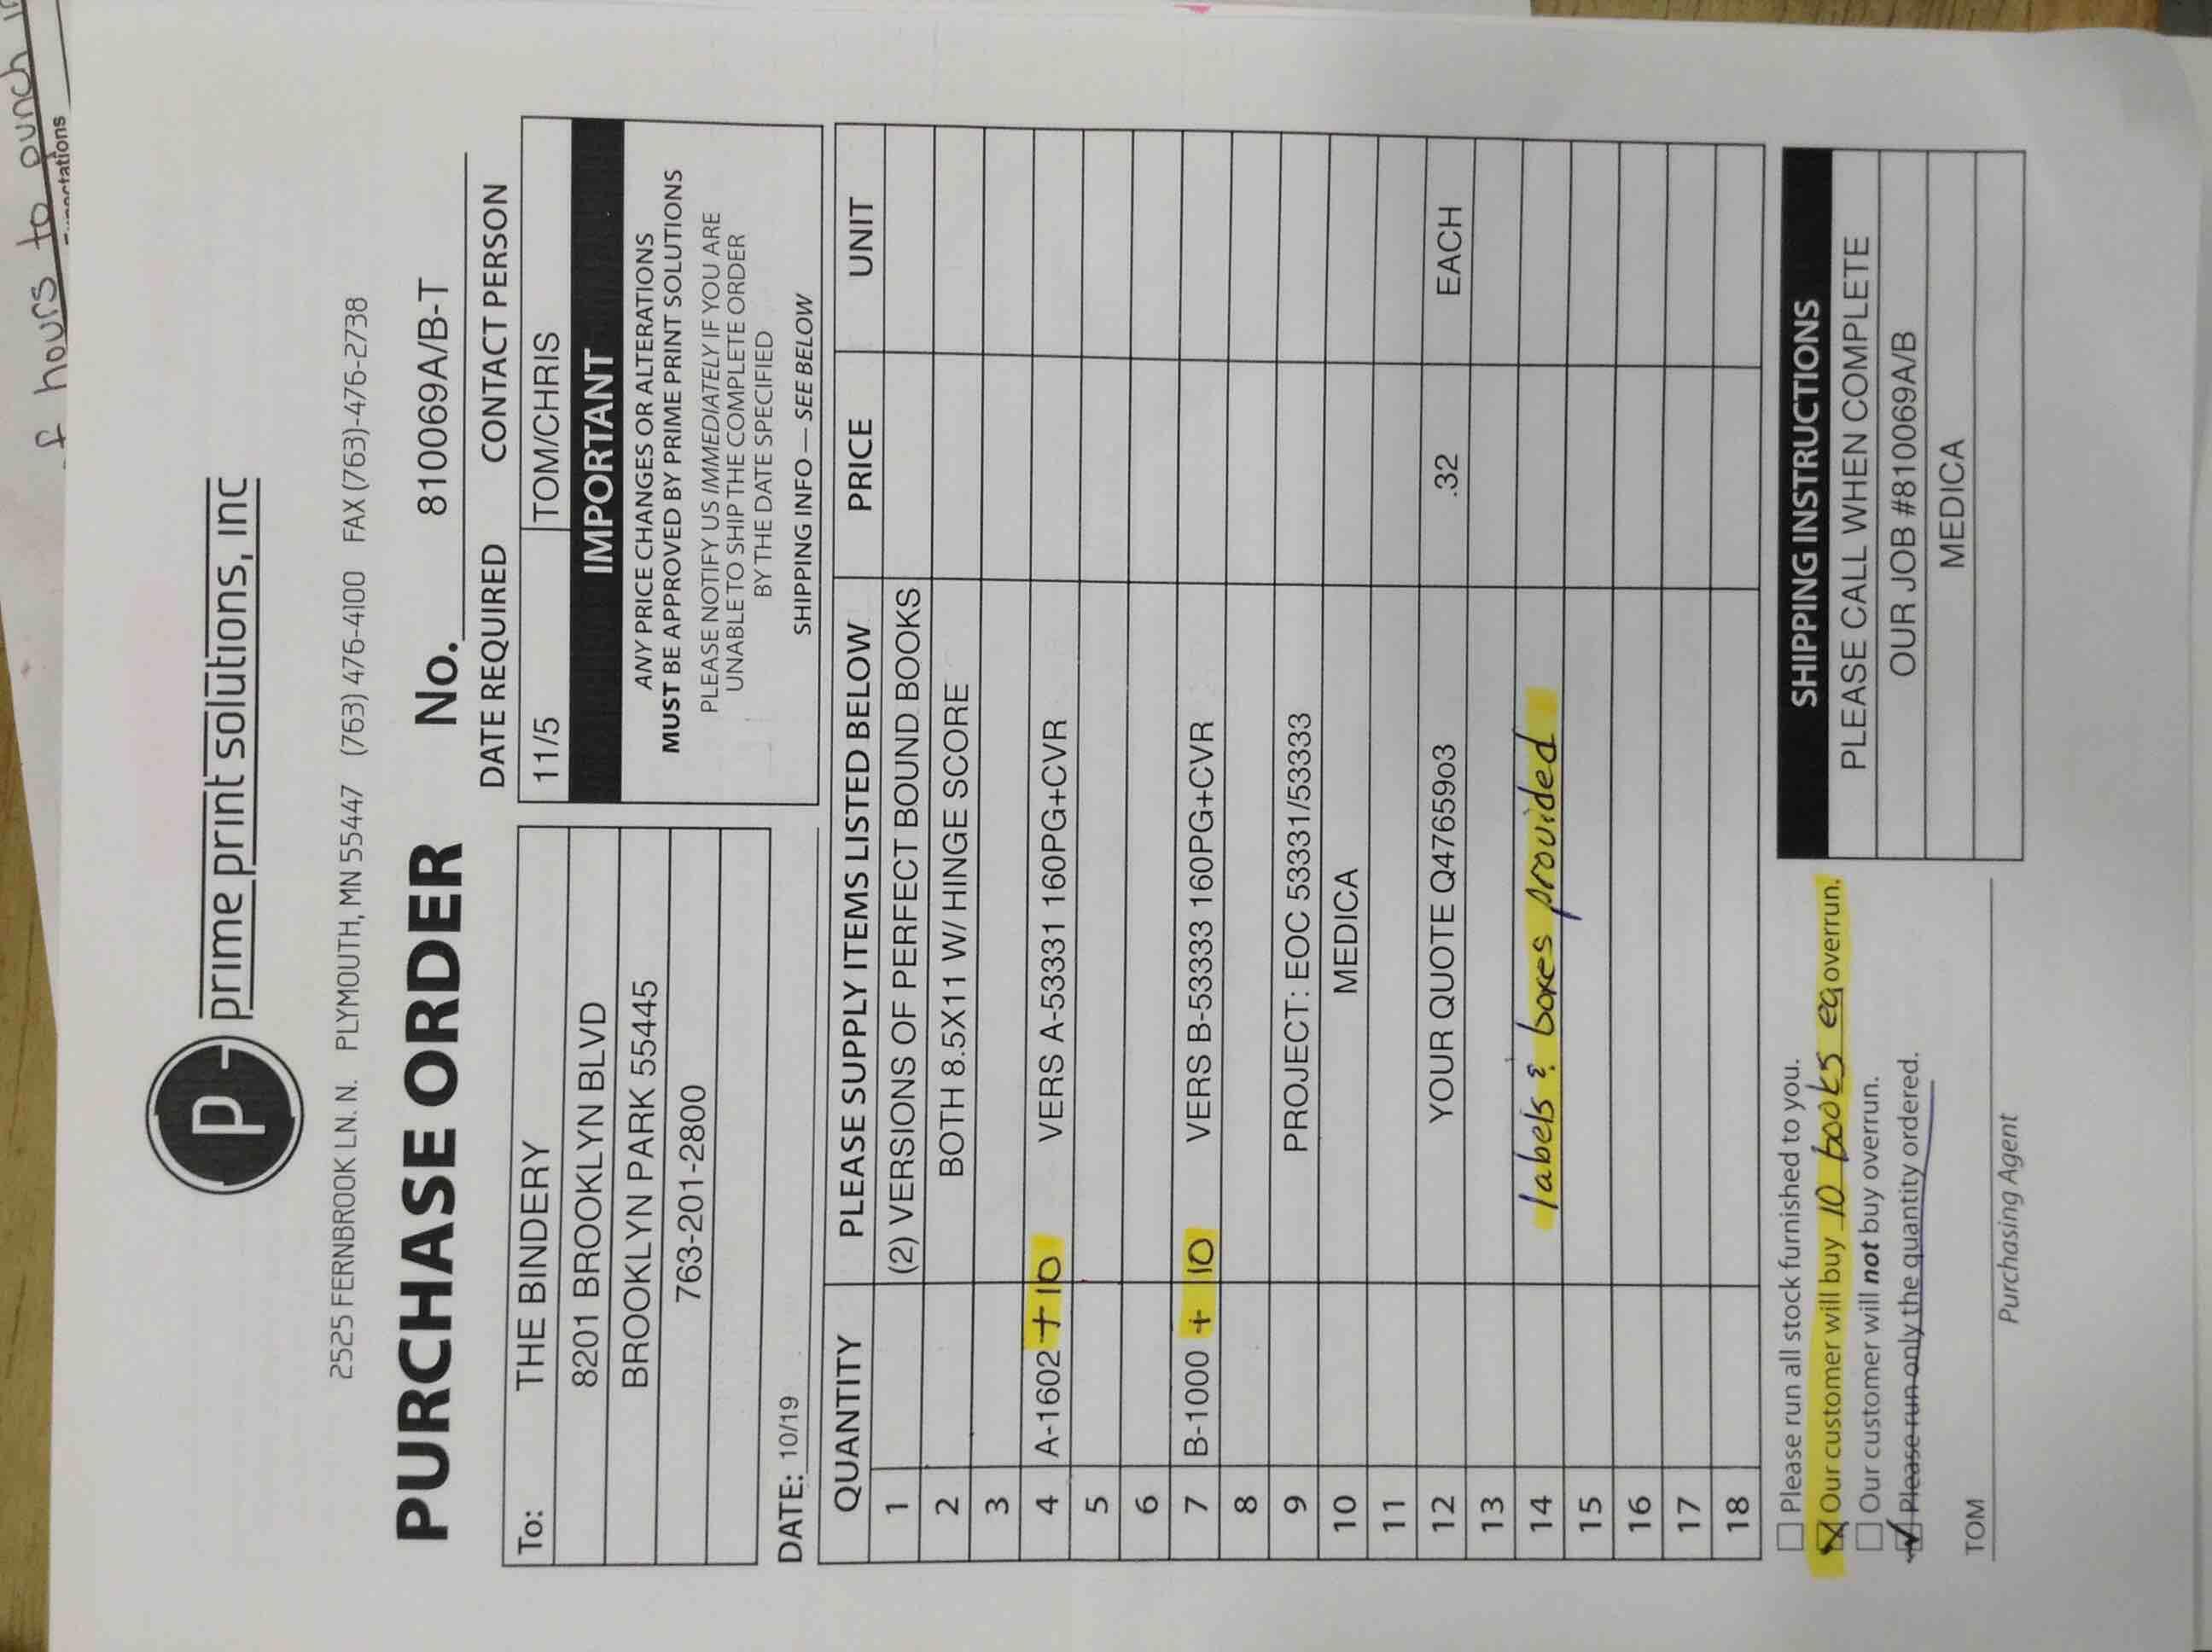 f hours to punch
P
prime print solutions, inc
2525 FERNBROOK LN. N. PLYMOUTH, MN 55447 (763) 476-4100 FAX (763)-476-2738
PURCHASE ORDER No. 810069A/B-T
DATE REQUIRED CONTACT PERSON
To: THE BINDERY
8201 BROOKLYN BLVD
BROOKLYN PARK 55445
763-201-2800
11/5 TOM/CHRIS
IMPORTANT
ANY PRICE CHANGES OR ALTERATIONS
MUST BE APPROVED BY PRIME PRINT SOLUTIONS
PLEASE NOTIFY US IMMEDIATELY IF YOU ARE
UNABLE TO SHIP THE COMPLETE ORDER
BY THE DATE SPECIFIED
SHIPPING INFO — SEE BELOW
DATE: 10/19
QUANTITY PLEASE SUPPLY ITEMS LISTED BELOW PRICE UNIT
1 (2) VERSIONS OF PERFECT BOUND BOOKS
2 BOTH 8.5X11 W/ HINGE SCORE
3
4 A-1602 + 10 VERS A-53331 160PG+CVR
5
6
7 B-1000 + 10 VERS B-53333 160PG+CVR
8
9 PROJECT: EOC 53331/53333
10 MEDICA
11
12 YOUR QUOTE Q474659o3 .32 EACH
13
14 labels & boxes provided
15
16
17
18
Please run all stock furnished to you.
Our customer will buy 10 books eq overrun.
Our customer will not buy overrun.
Please run only the quantity ordered.
TOM
Purchasing Agent
SHIPPING INSTRUCTIONS
PLEASE CALL WHEN COMPLETE
OUR JOB #810069A/B
MEDICA